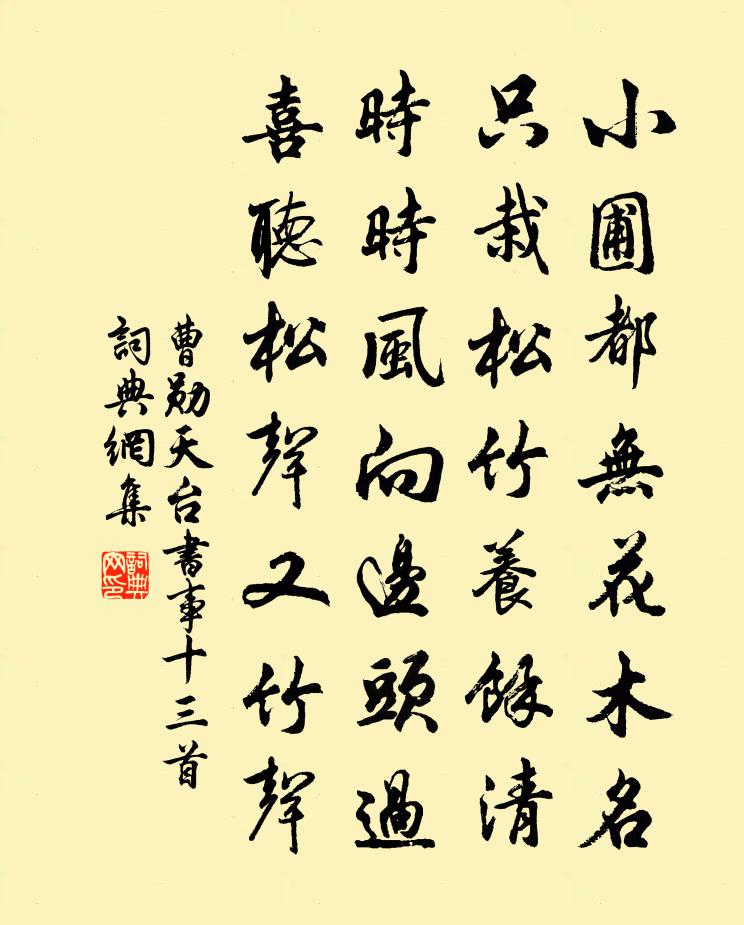 小圃都無花木名
只栽松竹養餘清
時時風向邊頭過
喜聽松聲又竹聲
曹勛天台書事十三首
詞典網集
詞典网印